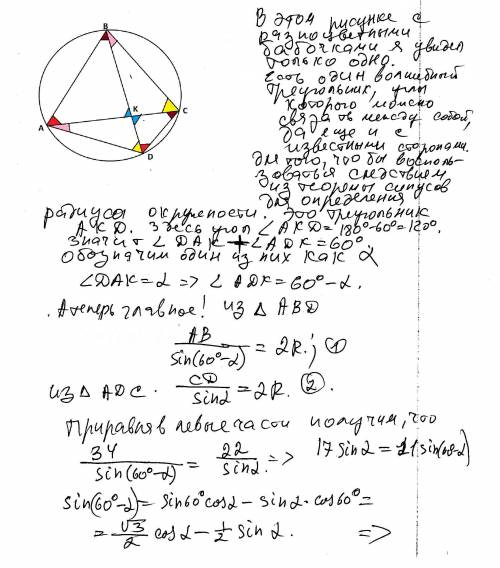 B
K
C
A
D
В этом рисунке с
разноцветными
бабочками я увидел
только одно.
Есть один волшебный
треугольник, углы
которого можно
связать между собой,
да еще и с
известными сторонами.
Для того, чтобы восполь-
зоваться следствием
из теоремы синусов
для определения
радиуса окружности. Это треугольник
AKD. Здесь угол ∠AKD=180°-60°=120°.
значит ∠DAK+∠ADK=60°.
Обозначим один из них как α
∠DAK=α => ∠ADK=60°-α.
. А теперь главное! из △ABD
AB/sin(60°-α) = 2R; ①
из △ADC. CD/sinα = 2R. ②.
Приравняв левые части получим, что
34/sin(60°-α) = 22/sinα => 17sinα=11sin(60-α)
sin(60°-α)=sin60°cosα-sinα·cos60°=
= √3/2 cosα - 1/2 sinα. =>